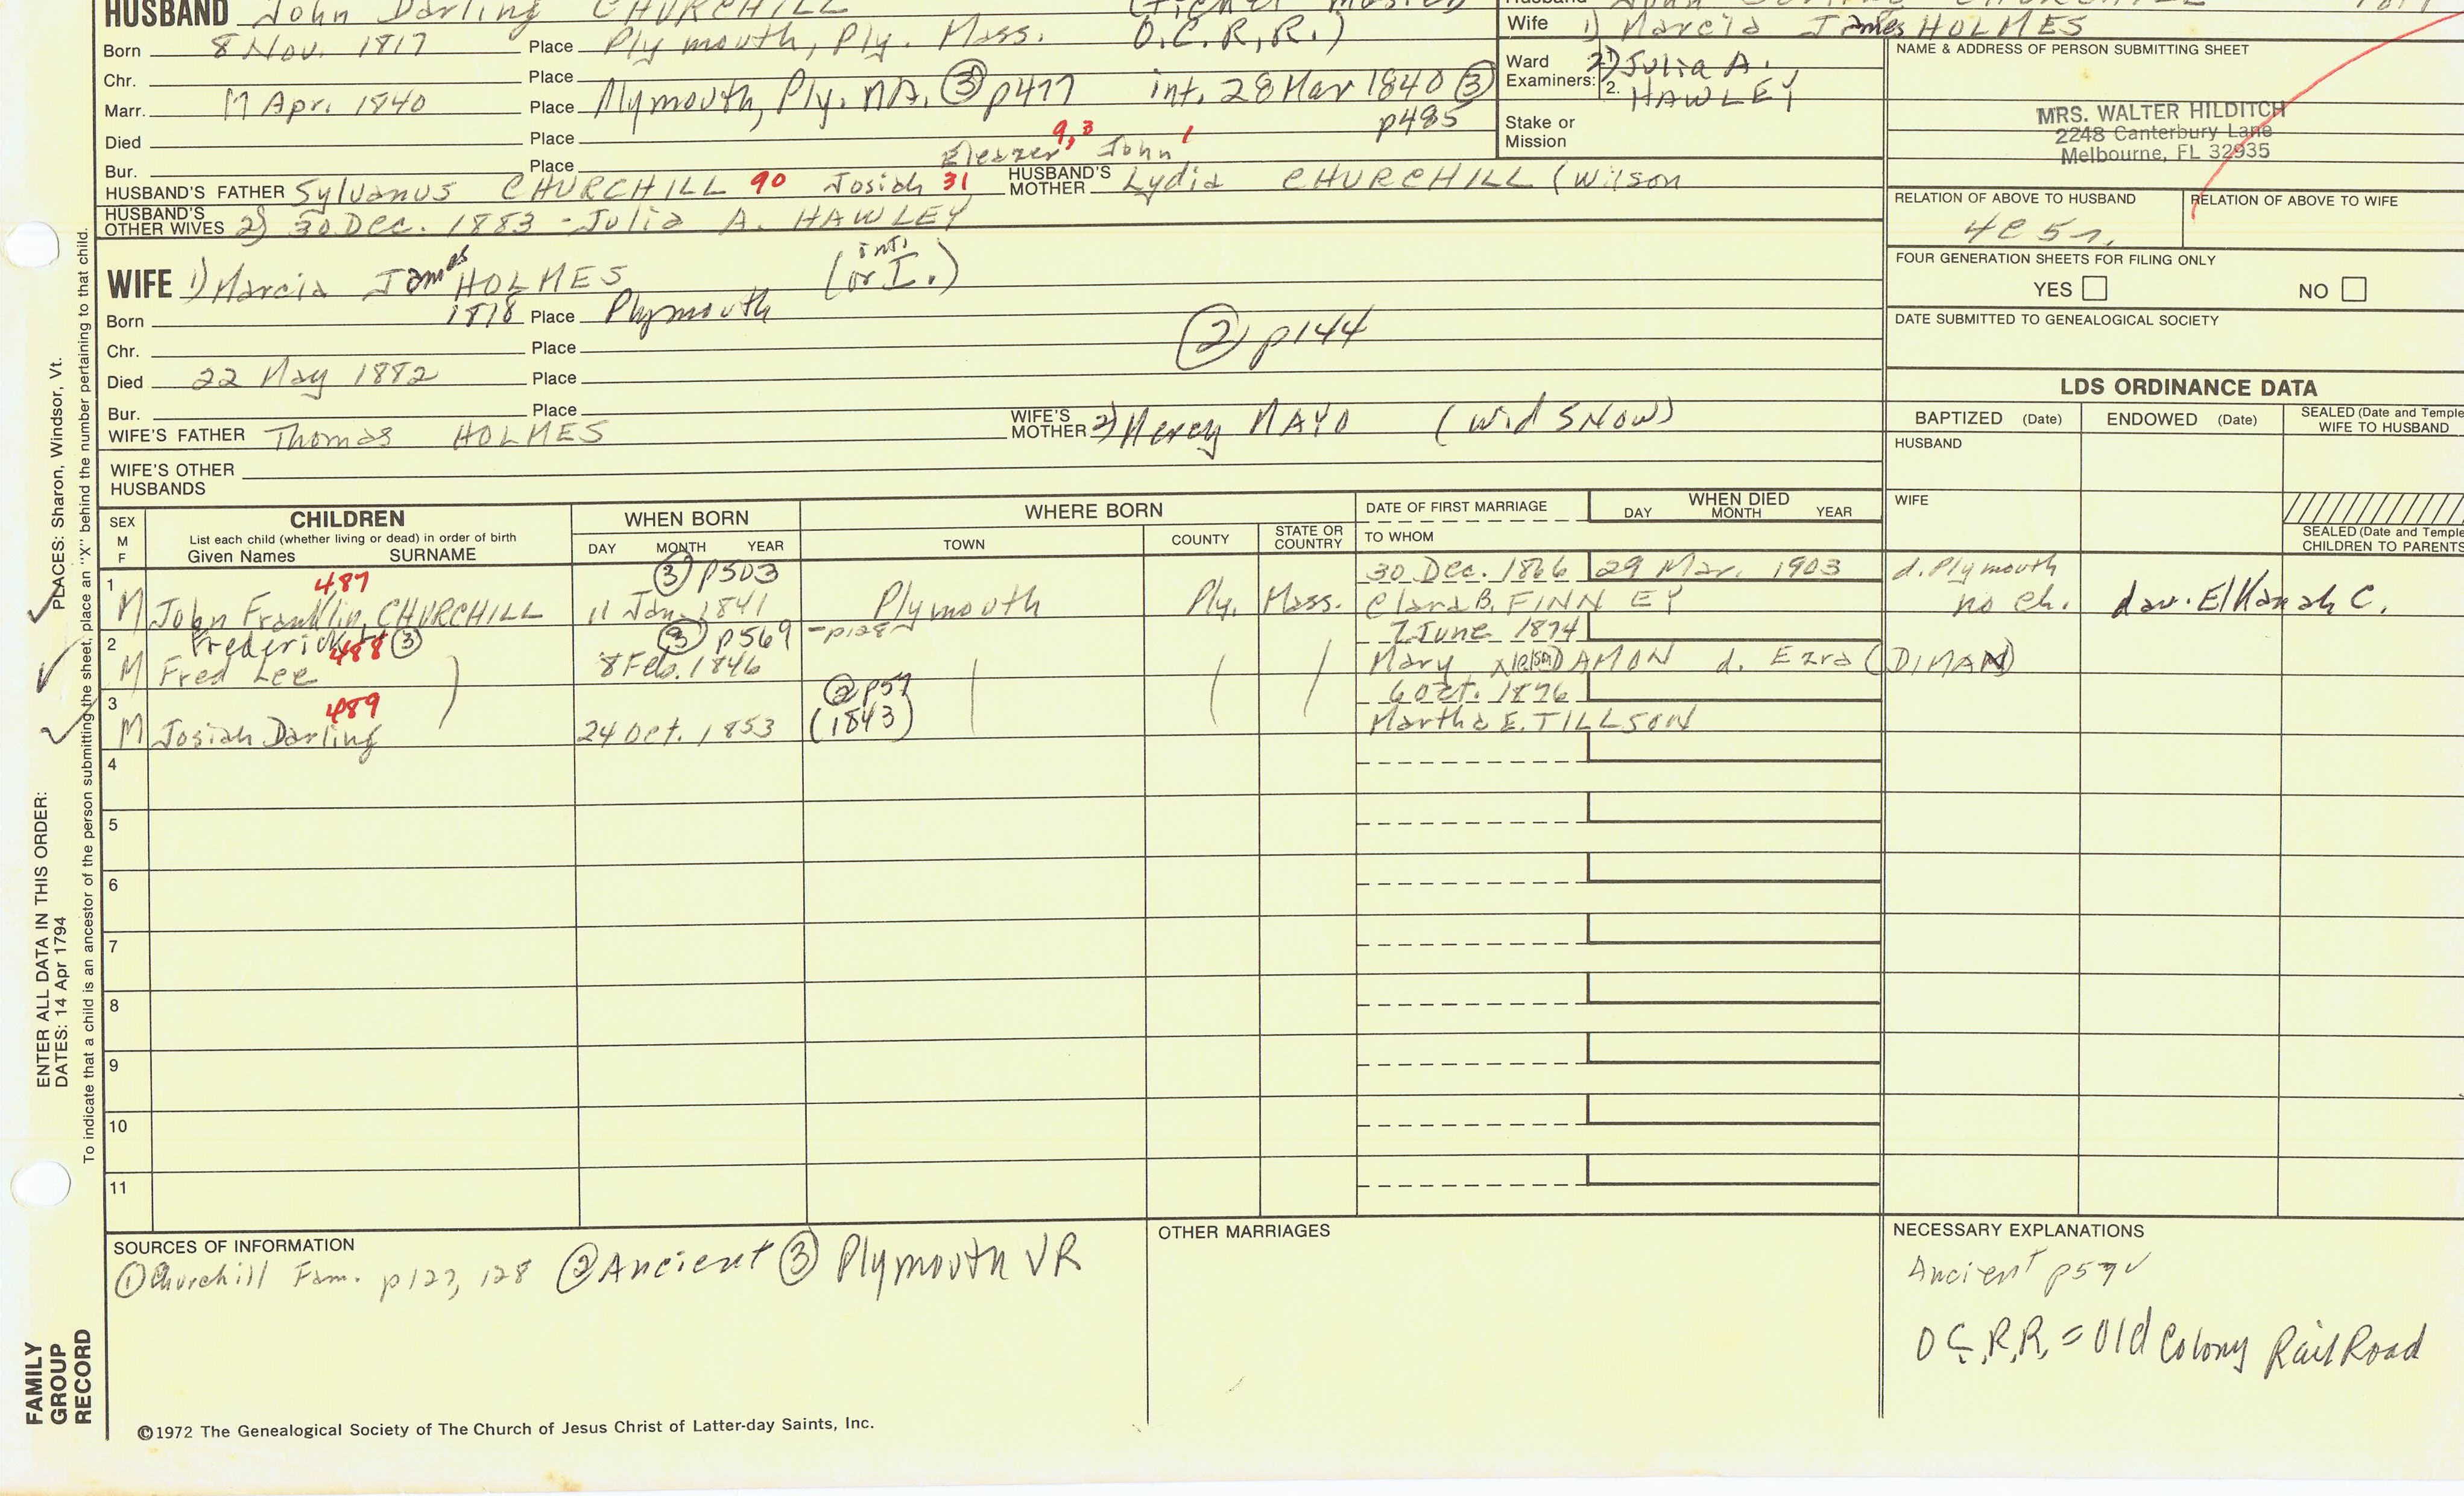 HUSBAND John Darling CHURCHILL
Born 8 Nov. 1817 Place Plymouth, Ply. Mass. O.C.R.R.)
Chr. Place
Marr. 17 Apr. 1840 Place Plymouth, Ply. MA. ③ p477 int. 28 Mar 1840 ③ p485
Died Place
Bur. Place
Eleazer 9,3 John 1
HUSBAND'S FATHER Sylvanus CHURCHILL 90 Josiah 31 HUSBAND'S MOTHER Lydia CHURCHILL (Wilson
HUSBAND'S OTHER WIVES 2) 30 Dec. 1883 - Julia A. HAWLEY
Wife 1) Marcia James HOLMES
Ward Examiners: 1. 2. 2) Julia A. HAWLEY
Stake or Mission
NAME & ADDRESS OF PERSON SUBMITTING SHEET
MRS. WALTER HILDITCH
2248 Canterbury Lane
Melbourne, FL 32935
RELATION OF ABOVE TO HUSBAND RELATION OF ABOVE TO WIFE
4c5r.
FOUR GENERATION SHEETS FOR FILING ONLY
YES NO
DATE SUBMITTED TO GENEALOGICAL SOCIETY
WIFE 1) Marcia James HOLMES (or I.) int.
Born 1818 Place Plymouth
② p144
Chr. Place
Died 22 May 1882 Place
Bur. Place
WIFE'S FATHER Thomas HOLMES WIFE'S MOTHER 2) Mercy MAYO (wid SNOW)
WIFE'S OTHER HUSBANDS
LDS ORDINANCE DATA
BAPTIZED (Date) ENDOWED (Date) SEALED (Date and Temple WIFE TO HUSBAND
HUSBAND
WIFE
SEALED (Date and Temple CHILDREN TO PARENTS
SEX M F CHILDREN List each child (whether living or dead) in order of birth Given Names SURNAME
WHEN BORN DAY MONTH YEAR
WHERE BORN TOWN COUNTY STATE OR COUNTRY
DATE OF FIRST MARRIAGE TO WHOM
WHEN DIED DAY MONTH YEAR
1 487 ③ p503 30 Dec. 1866 29 Mar. 1903 d. Plymouth
M John Franklin CHURCHILL 11 Jan. 1841 Plymouth Ply. Mass. Clara B. FINNEY no ch. dau. Elkanah C.
2 Frederick ③ 488 ③ p569 -p128- 7 June 1874
M Fred Lee 8 Feb. 1846 Mary Nelson DAMON d. Ezra (DIMAN)
3 489 ② p57 6 Oct. 1876
M Josiah Darling 24 Oct. 1853 (1843) Martha E. TILLSON
4
5
6
7
8
9
10
11
SOURCES OF INFORMATION
① Churchill Fam. p127, 128 ② Ancient ③ Plymouth VR
OTHER MARRIAGES
NECESSARY EXPLANATIONS
Ancient p57 ✓
O.C.R.R. = Old Colony RailRoad
FAMILY GROUP RECORD
ENTER ALL DATA IN THIS ORDER:
DATES: 14 Apr 1794 PLACES: Sharon, Windsor, Vt.
To indicate that a child is an ancestor of the person submitting the sheet, place an "X" behind the number pertaining to that child.
©1972 The Genealogical Society of The Church of Jesus Christ of Latter-day Saints, Inc.